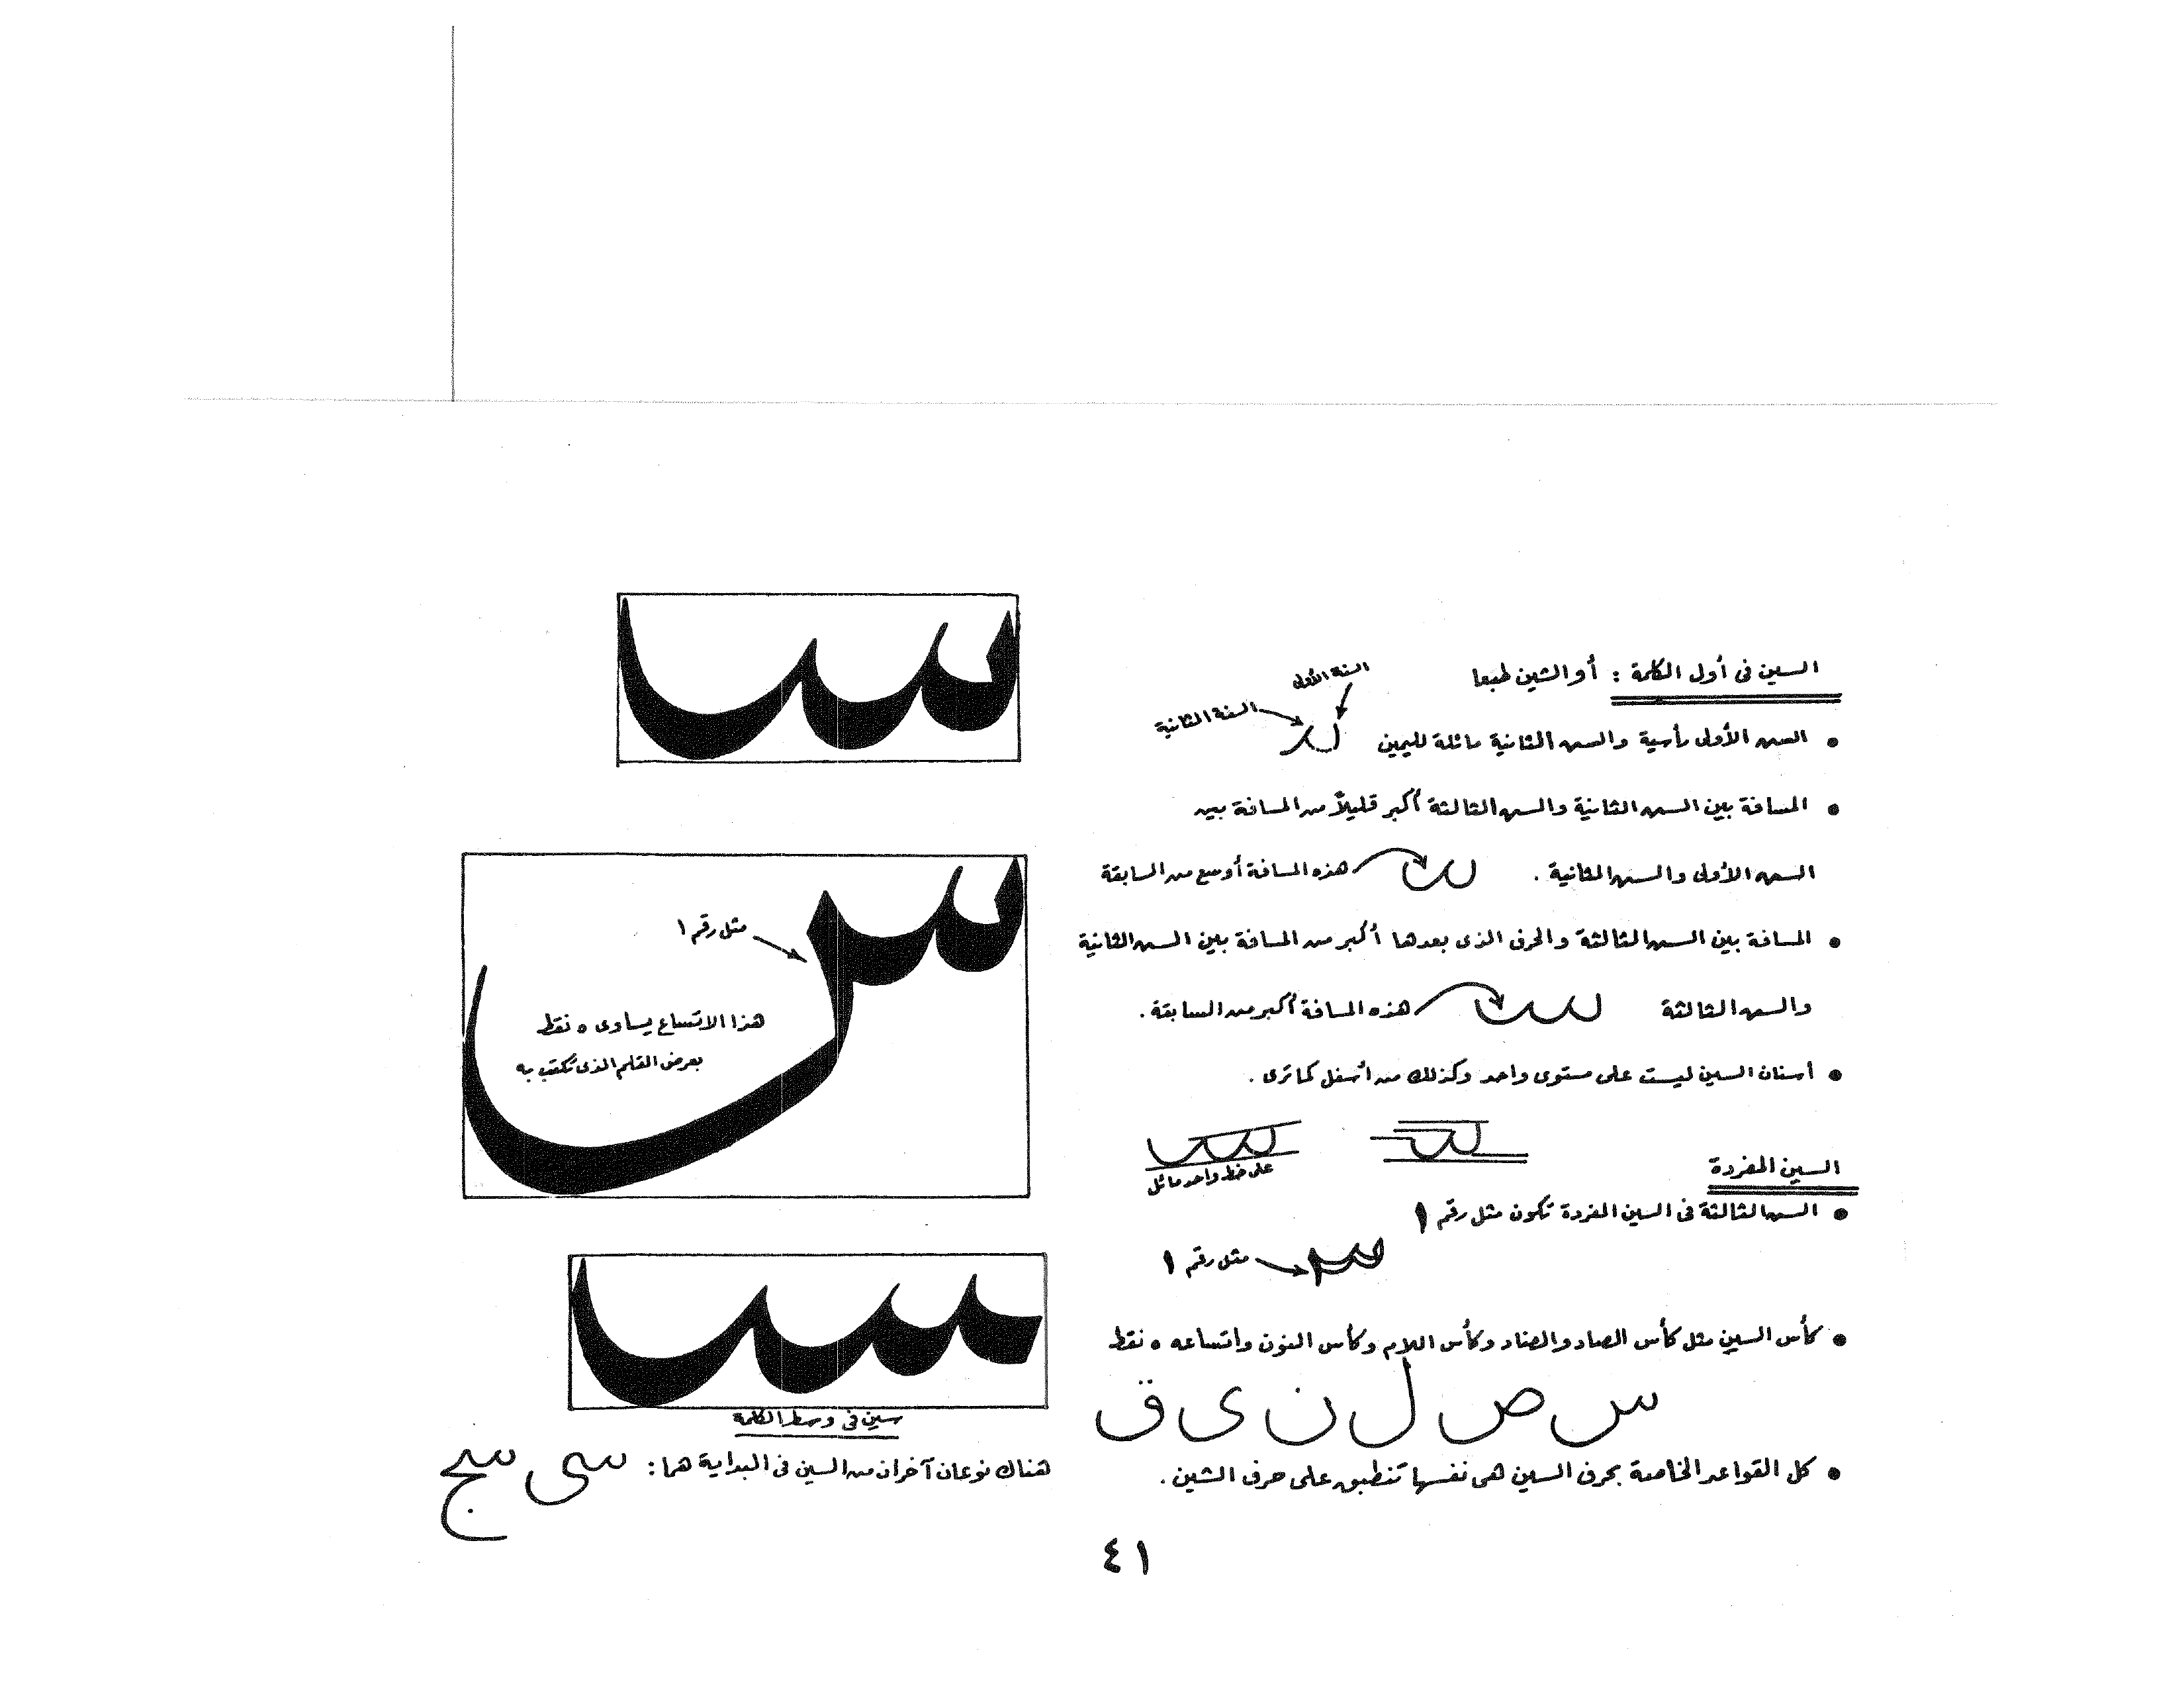 السين فى أول الكلمة : أو الشين طبعا
السنة الأولى
السنة الثانية
• السن الأولى رأسية والسن الثانية مائلة لليمين
• المسافة بين السن الثانية والسن الثالثة أكبر قليلاً من المسافة بين
السن الأولى والسن الثانية . هذه المسافة أوسع من السابقة
• المسافة بين السن الثالثة والحرف الذى بعدها أكبر من المسافة بين السن الثانية
والسن الثالثة هذه المسافة أكبر من السابقة .
• أسنان السين ليست على مستوى واحد وكذلك من أسفل كما ترى .
على خط واحد مائل
السين المفردة
• السن الثالثة فى السين المفردة تكون مثل رقم ١
مثل رقم ١
• كأس السين مثل كأس الصاد والضاد وكأس اللام وكأس النون واتساعه ٥ نقط
س ص ل ن ى ق
• كل القواعد الخاصة بحرف السين هى نفسها تنطبق على حرف الشين .
سـ
س
مثل رقم ١
هذا الاتساع يساوى ٥ نقط
بعرض القلم الذى تكتب به
ـسـ
سين فى وسط الكلمة
هناك نوعان آخران من السين فى البداية هما : سى سج
٤١